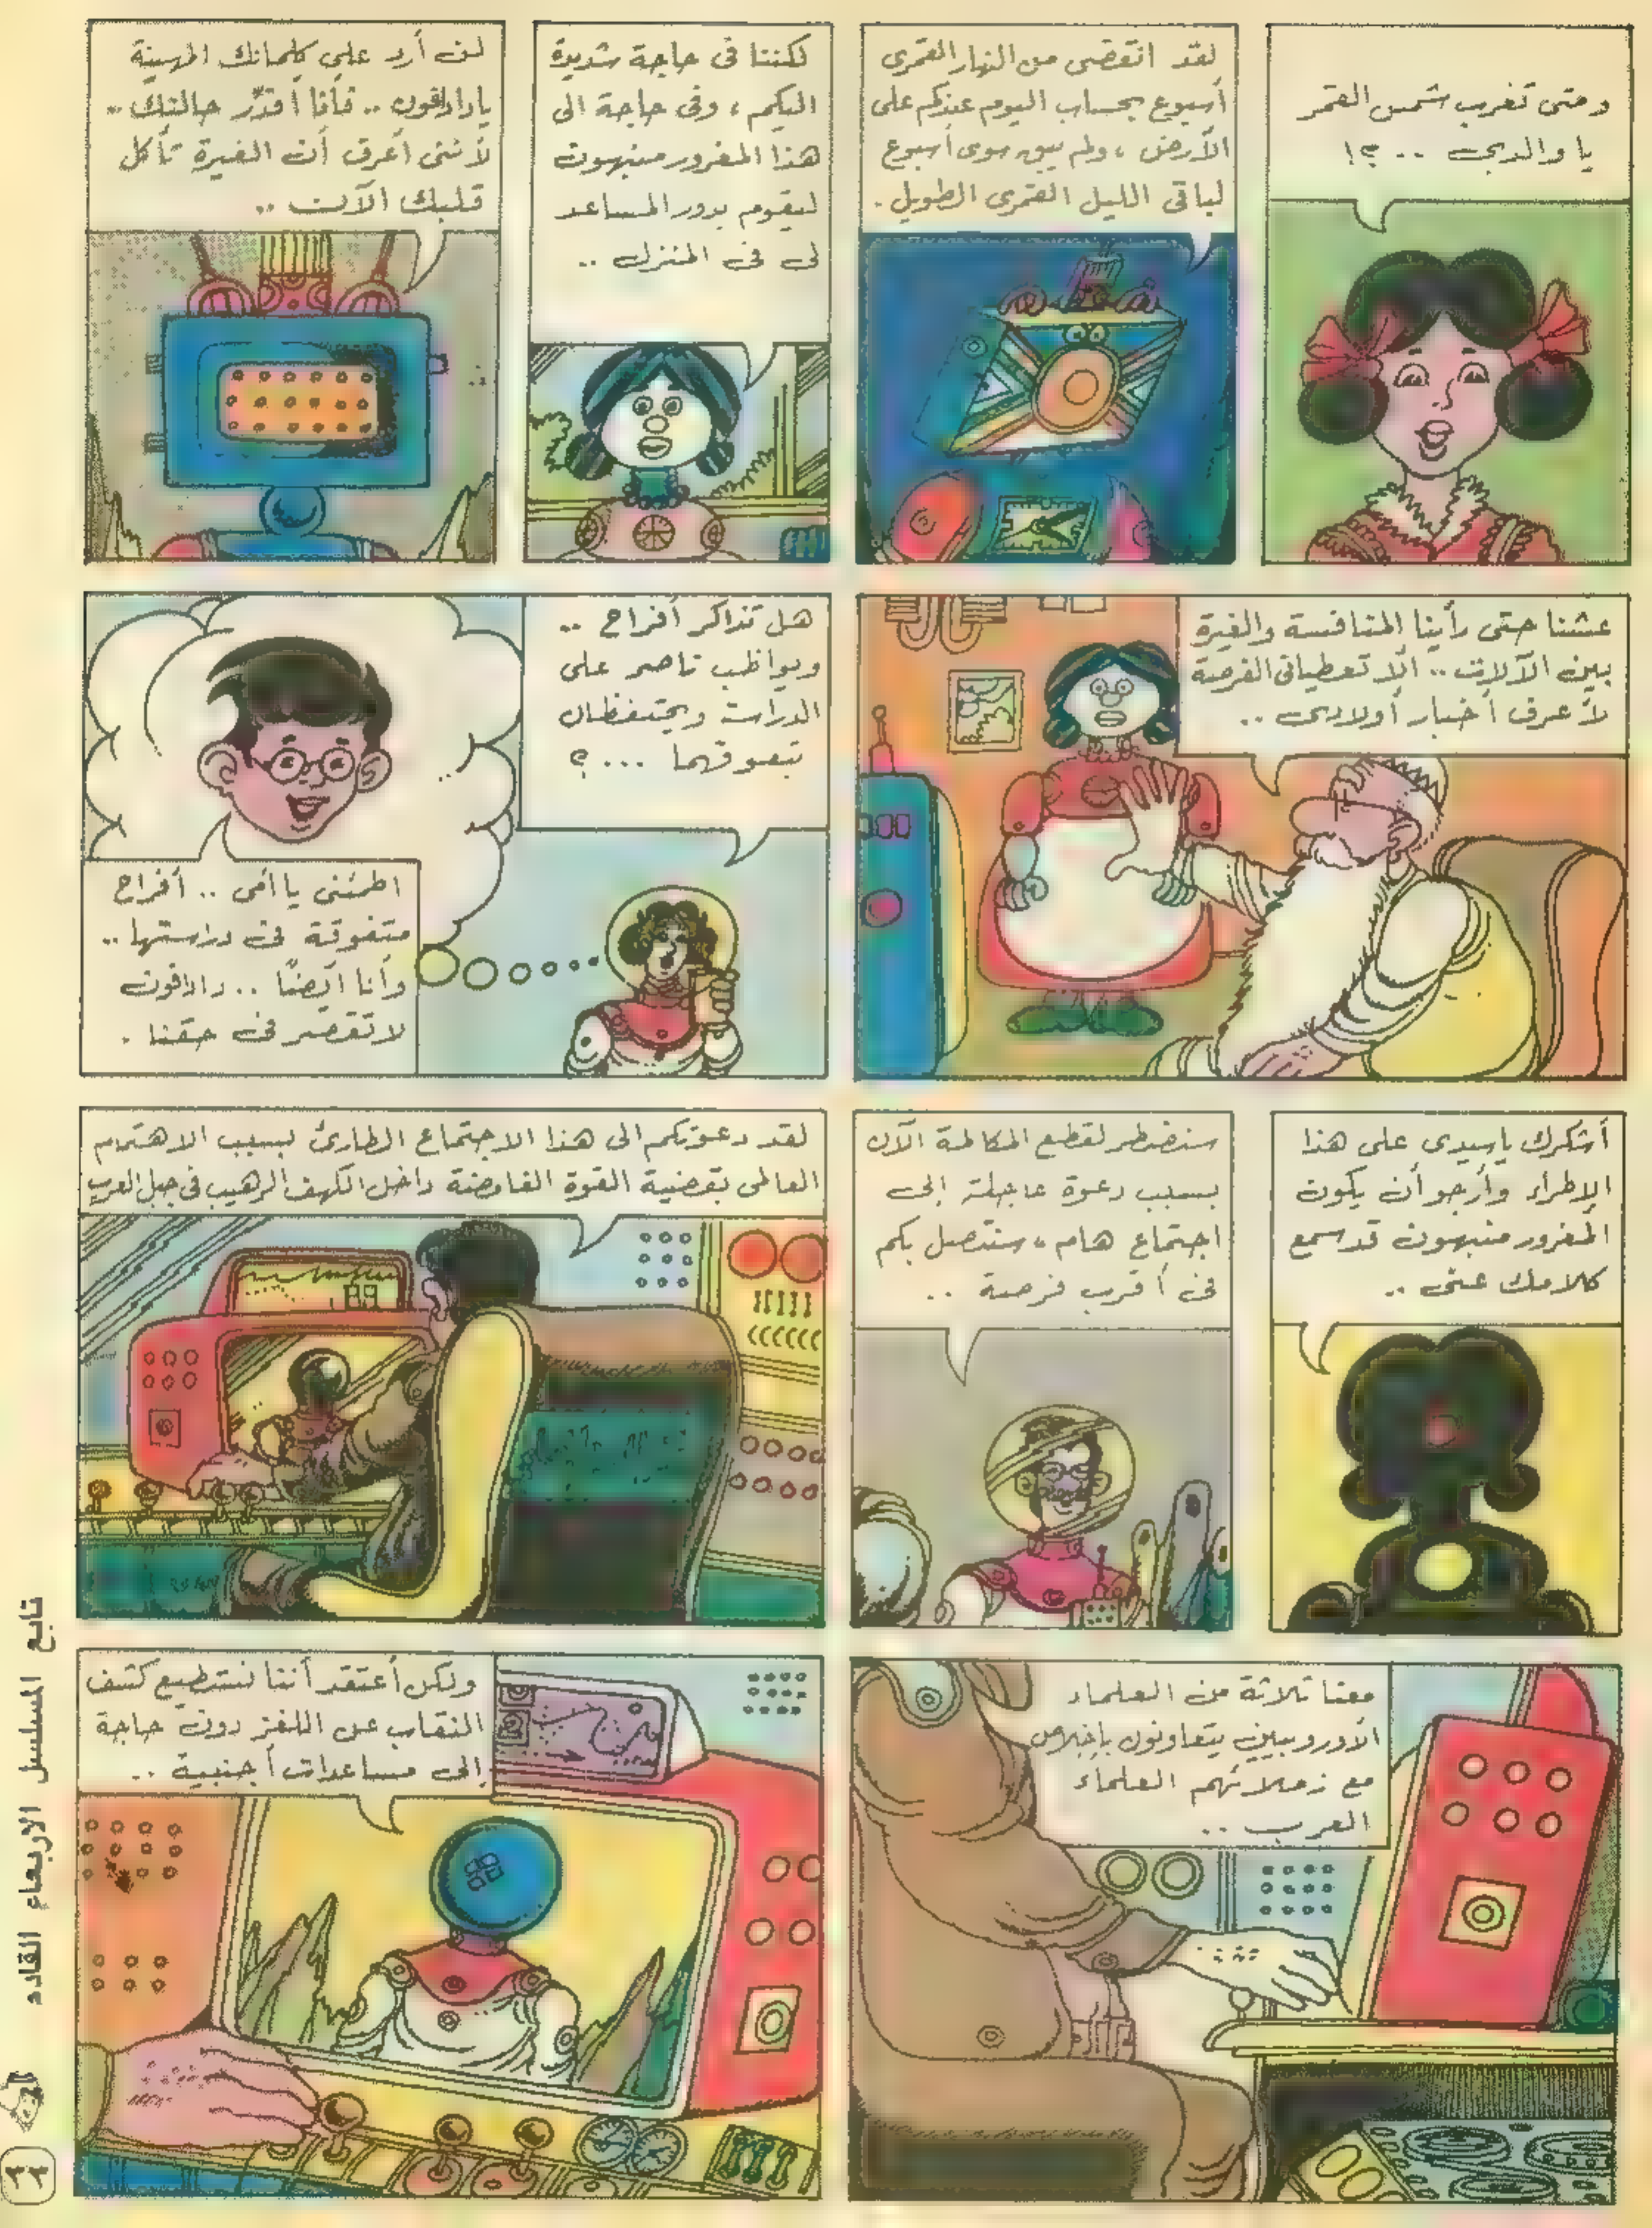 ومتى تغرب شمس القمر
يا والدى .. ؟!
لقد انقضى من النهار القمرى
أسبوع بحساب اليوم عندكم على
الأرض ، ولم يبق سوى أسبوع
لباقى الليل القمرى الطويل .
لكننا فى حاجة شديدة
اليكم ، وفى حاجة الى
هذا المغرور منبهون
ليقوم بدور المساعد
لى فى المنزل ..
لن أرد على كلماتك المهينة
يادادافون .. فأنا أقدّر حالتك ..
لأننى أعرف أن الغيرة تأكل
قلبك الآن ..
عشنا حتى رأينا المنافسة والغيرة
بين الآلات .. ألا تعطيانى الفرصة
لأعرف أخبار أولادى ..
هل تذاكر أفراح ..
ويواظب ناصر على
الدراسة ويحتفظان
بتفوقهما ... ؟
اطمئنى يا أمى .. أفراح
متفوقة فى دراستها ..
وأنا أيضًا .. دادافون
لا تقصر فى حقنا .
أشكرك ياسيدى على هذا
الإطراء وأرجو أن يكون
المغرور منبهون قد سمع
كلامك عنى ..
سنضطر لقطع المكالمة الآن
بسبب دعوة عاجلة إلى
اجتماع هام ، سنتصل بكم
فى أقرب فرصة ..
لقد دعوتكم الى هذا الاجتماع الطارئ بسبب الاهتمام
العالمى بقضية القوة الغامضة داخل الكهف الرهيب فى جبل العرب
معنا ثلاثة من العلماء
الأوروبيين يتعاونون بإخلاص
مع زملائهم العلماء
العرب ..
ولكن أعتقد أننا نستطيع كشف
النقاب عن اللغز دون حاجة
إلى مساعدات أجنبية ..
تابع المسلسل الاربعاء القادم
٢٢